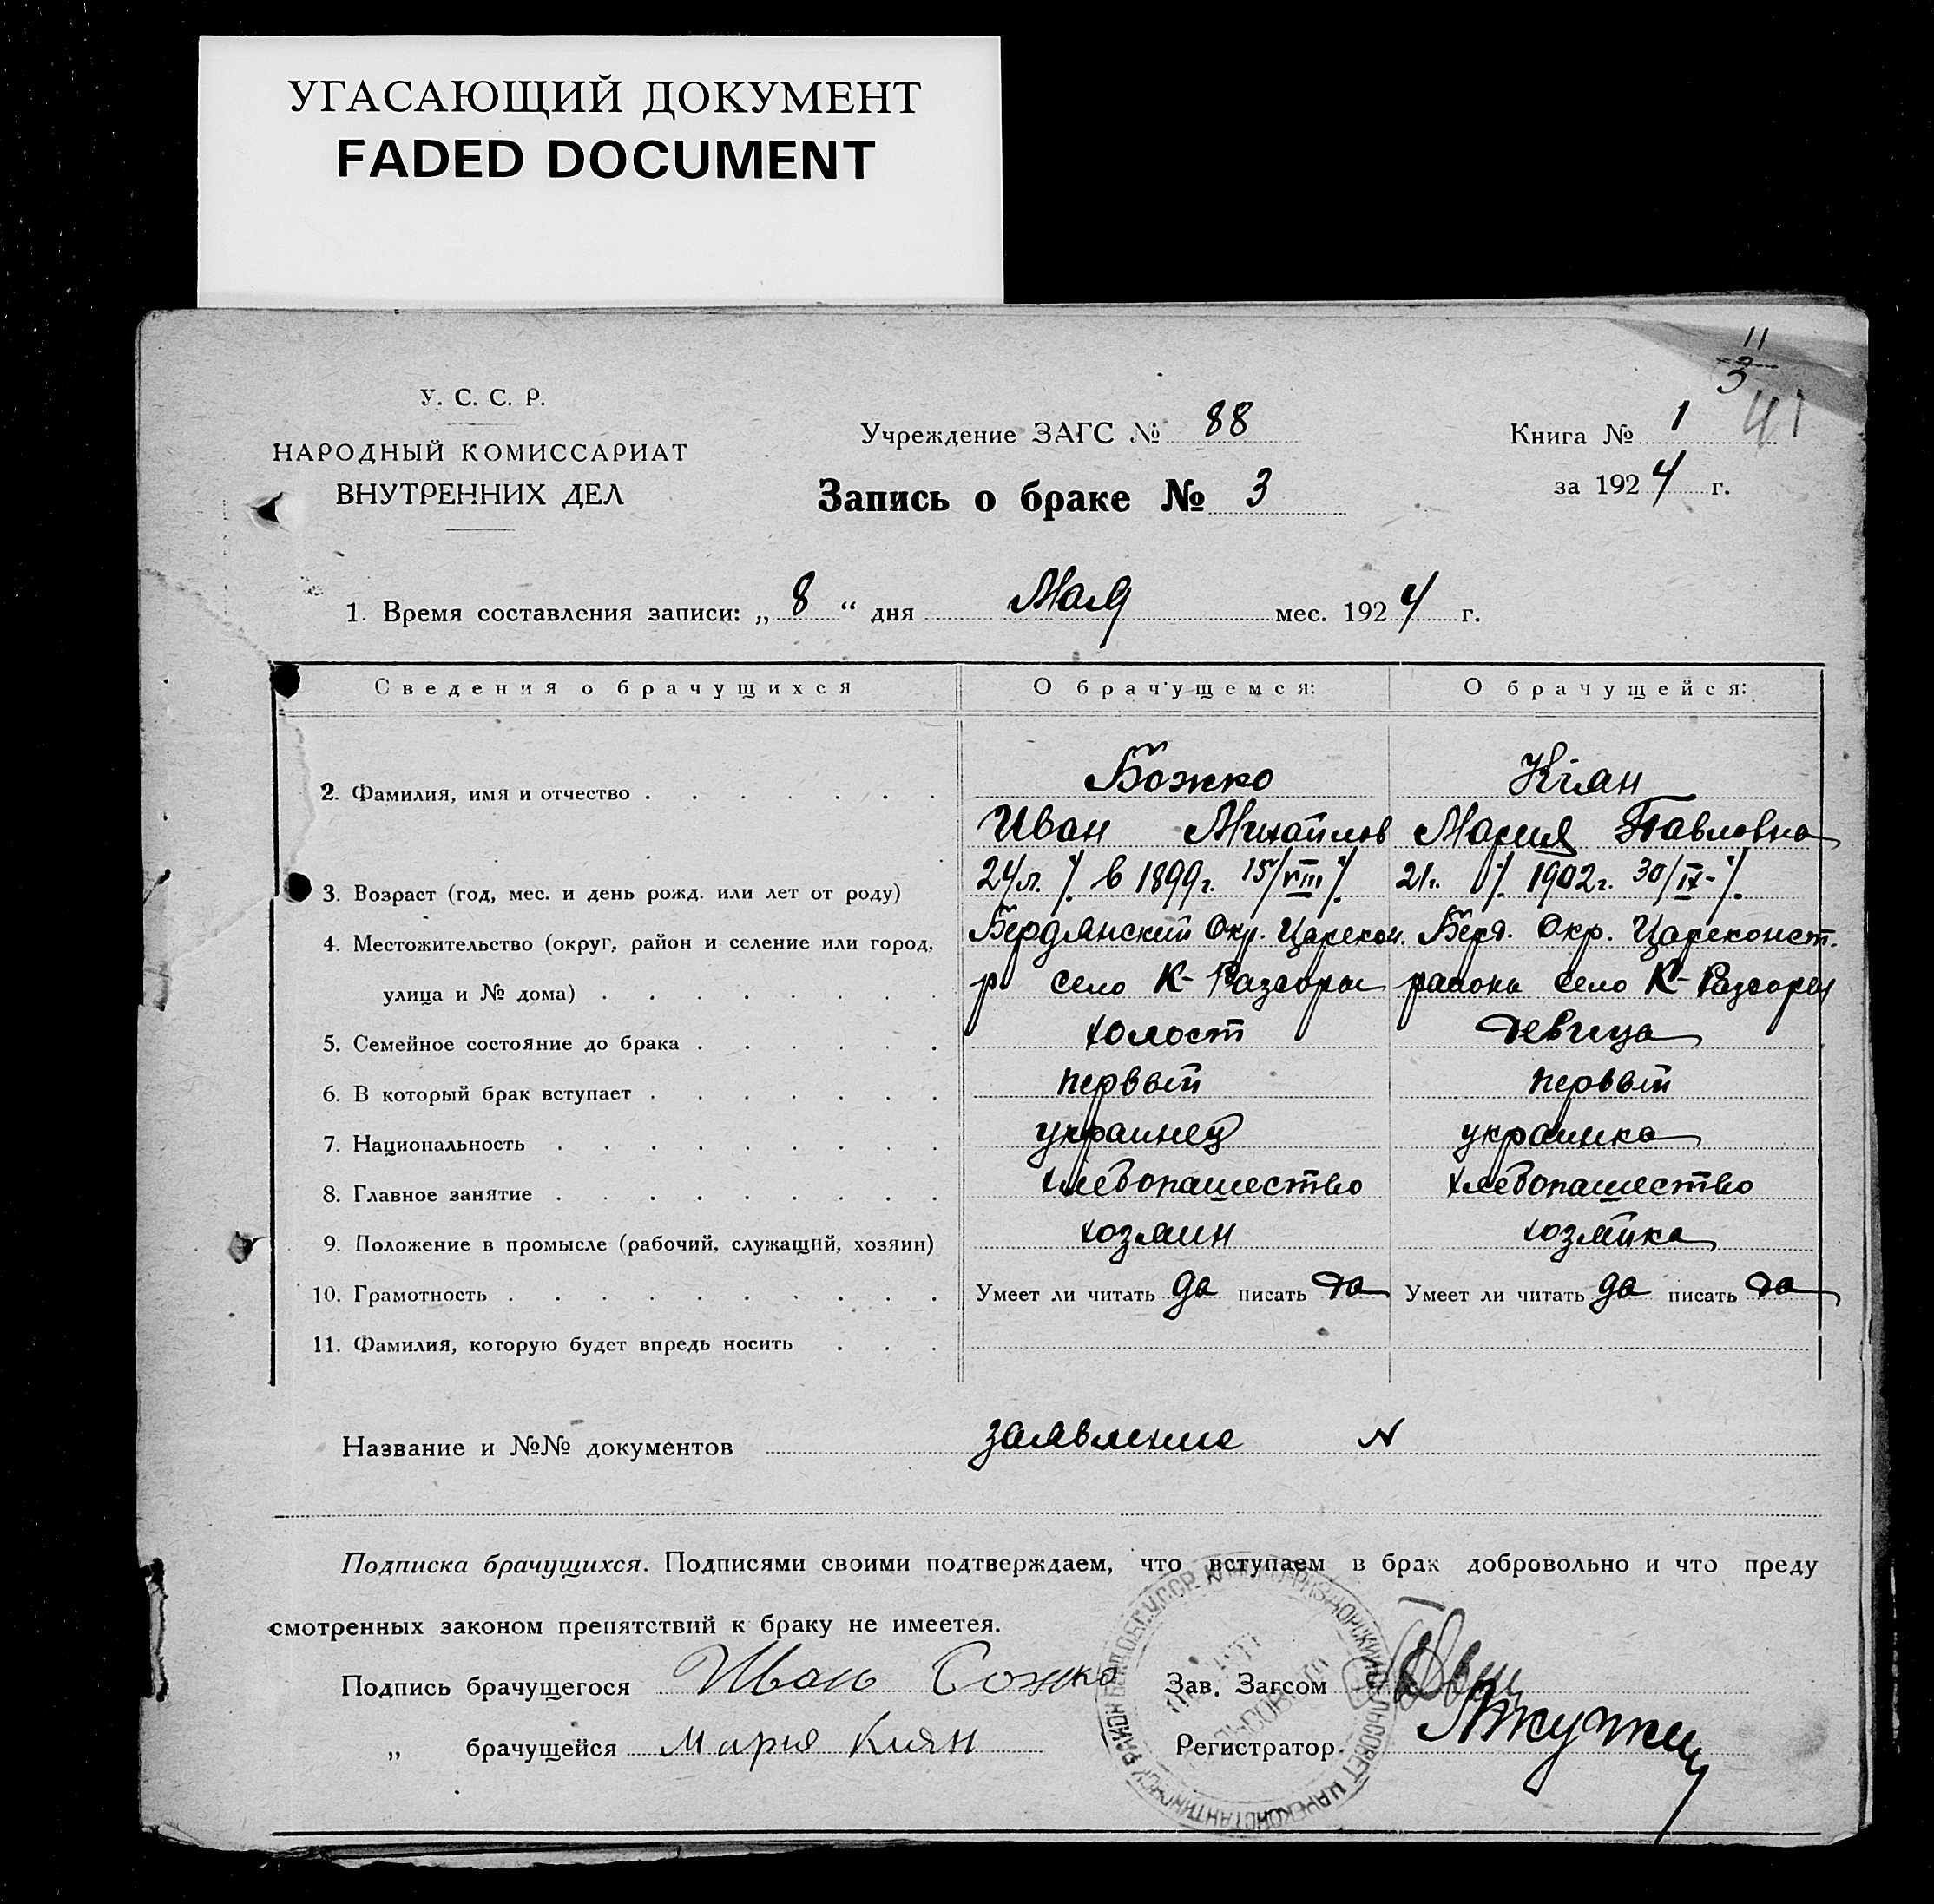 УГАСАЮЩИЙ ДОКУМЕНТ
FADED DOCUMENT
11
3
41
У. С. С. Р.
НАРОДНЫЙ КОМИССАРИАТ
ВНУТРЕННИХ ДЕЛ
Учреждение ЗАГС № 88
Запись о браке № 3
Книга № 1
за 1924 г.
1. Время составления записи: „ 8 “ дня Мая мес. 1924 г.
Сведения о брачущихся О брачущемся: О брачущейся:
2. Фамилия, имя и отчество Божко Кіян
Иван Михайлов Мария Павловна
3. Возраст (год, мес. и день рожд. или лет от роду) 24 л. в 1899 г. 15/VIII 21 г. 1902 г. 30/IX-
4. Местожительство (округ, район и селение или город, Бердянский Окр. Царекон. Берд. Окр. Цареконст.
улица и № дома) р село К-Разгоры района село К-Разгоры
5. Семейное состояние до брака холост девица
6. В который брак вступает первый первый
7. Национальность украинец украинка
8. Главное занятие хлебопашество хлебопашество
9. Положение в промысле (рабочий, служащий, хозяин) хозяин хозяйка
10. Грамотность Умеет ли читать да писать да Умеет ли читать да писать да
11. Фамилия, которую будет впредь носить
Название и №№ документов заявление N
Подписка брачущихся. Подписями своими подтверждаем, что вступаем в брак добровольно и что преду
смотренных законом препятствий к браку не имеется.
Подпись брачущегося Иван Божко Зав. Загсом
„ брачущейся Мария Киян Регистратор